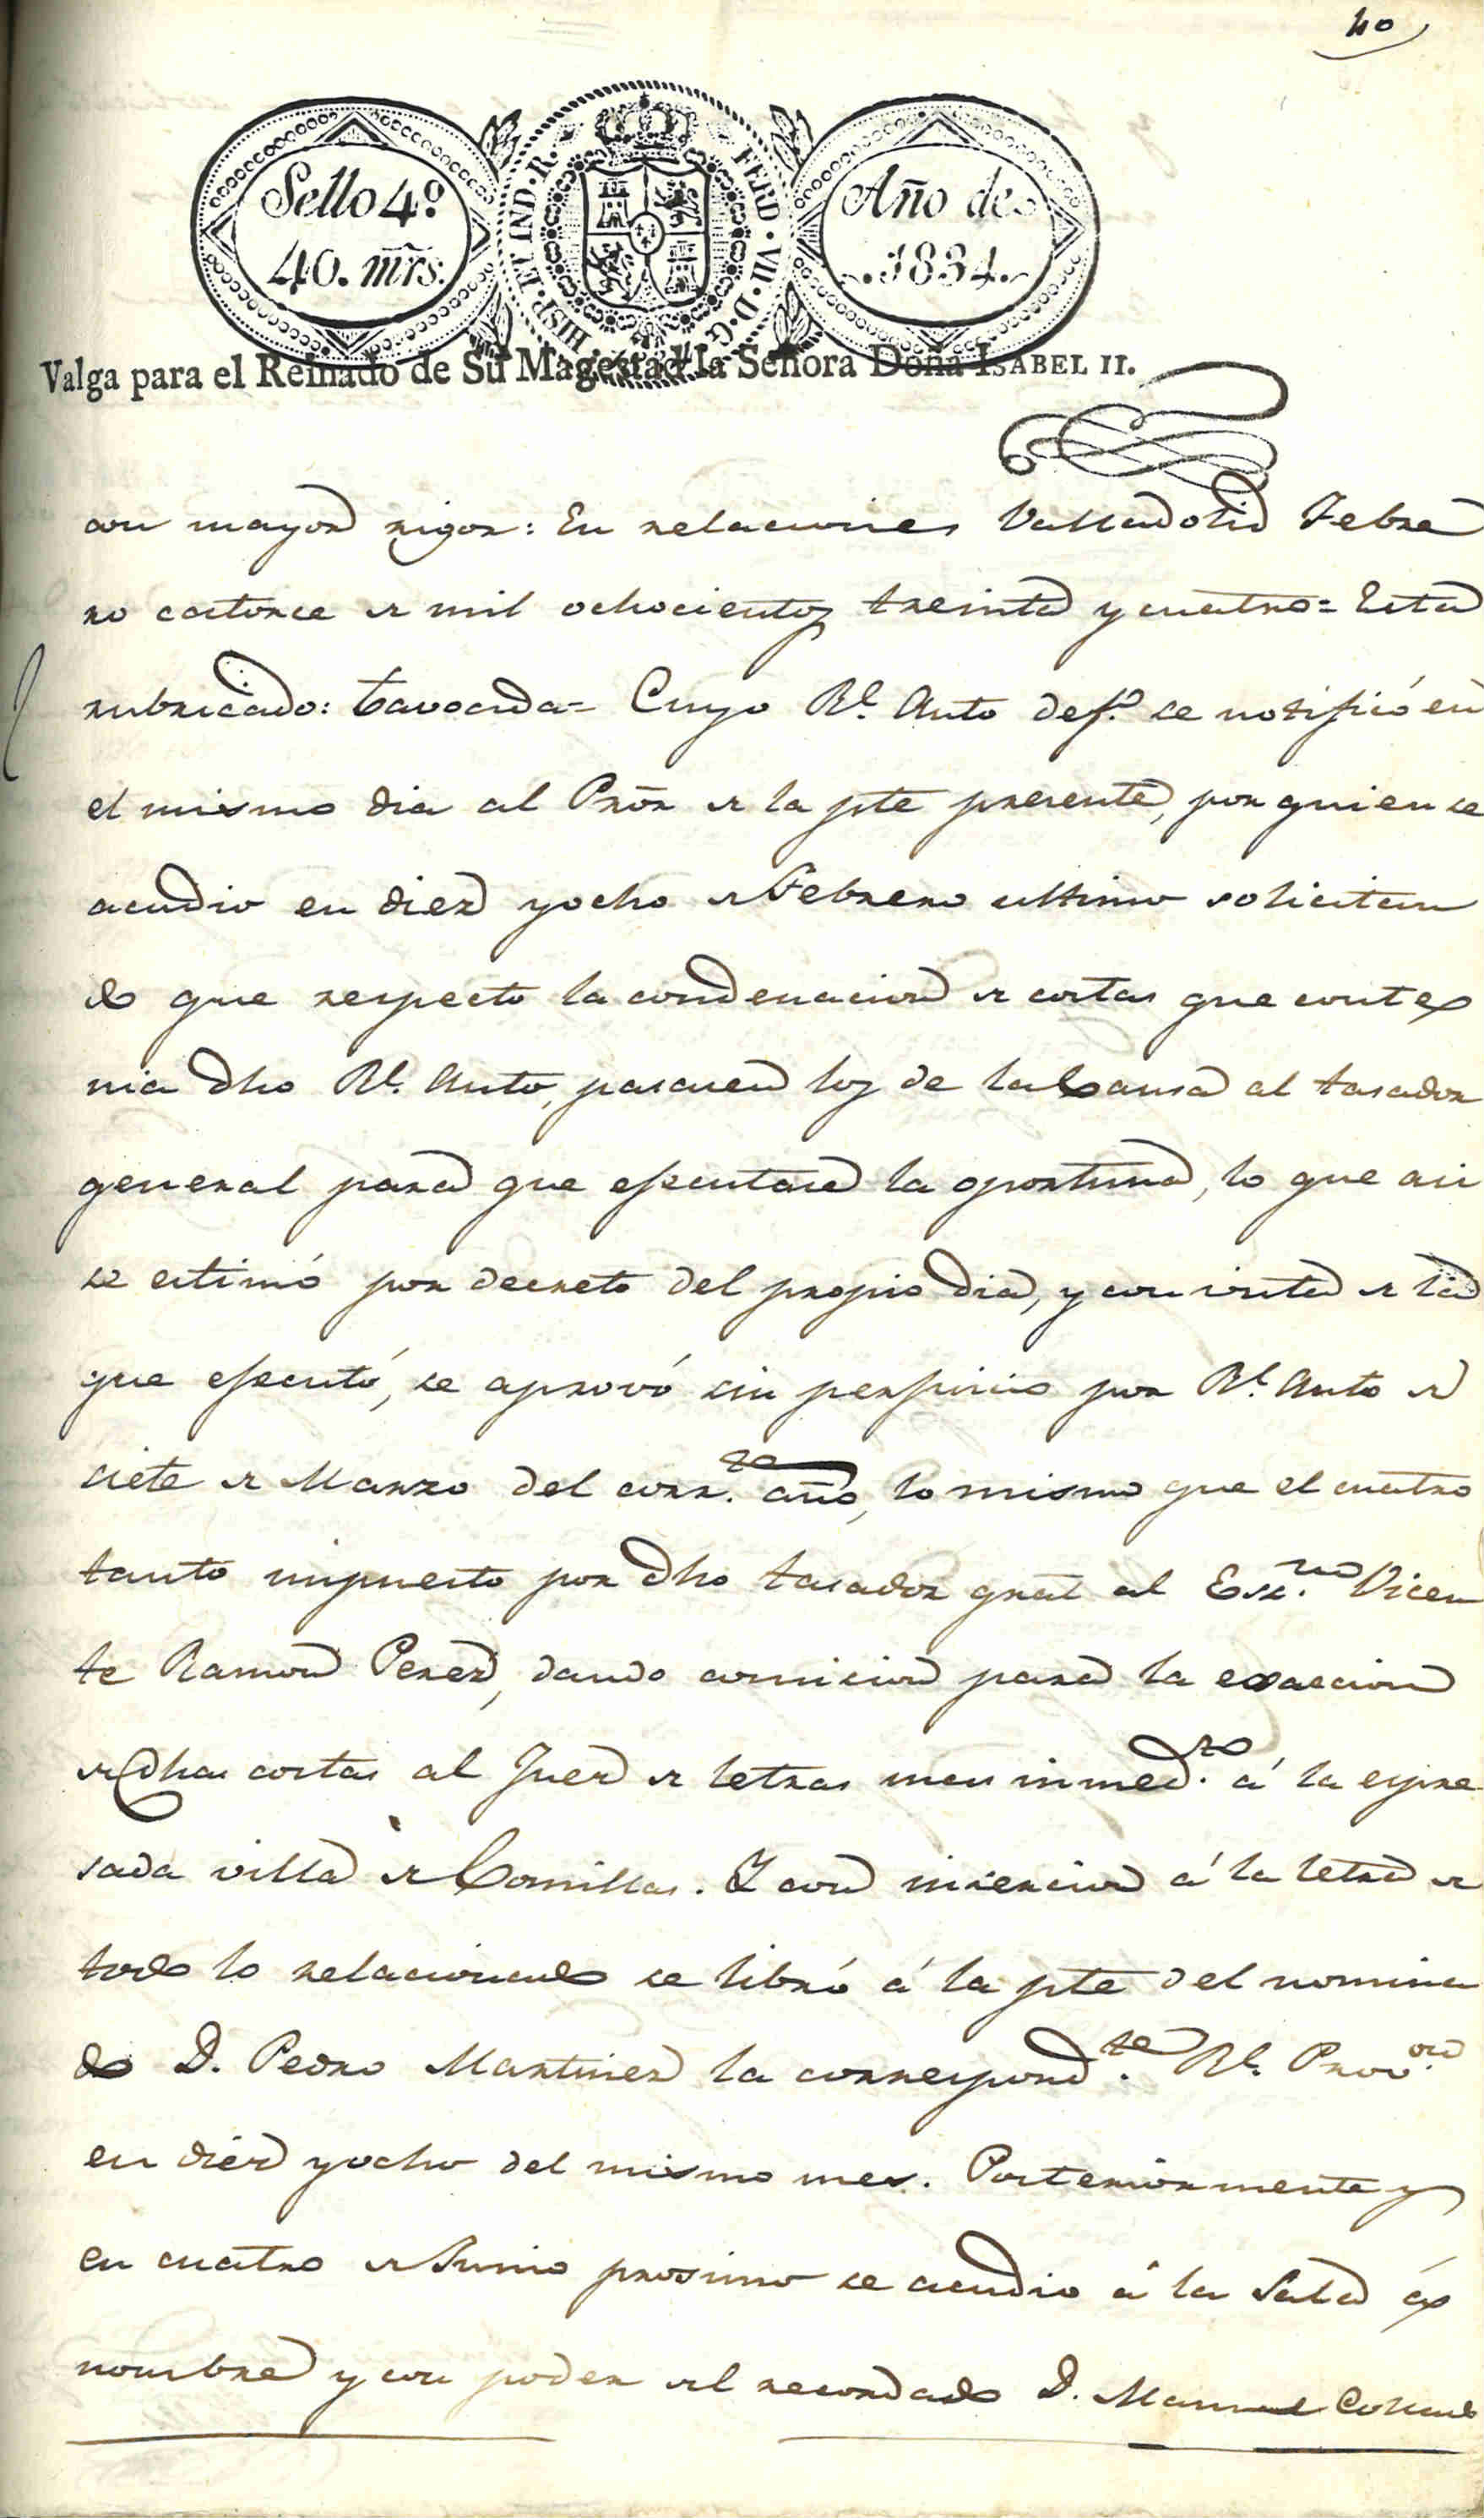 40
Sello 4.º
40. mrs.
HISP. ET IND. R.
FERD. VII. D. G.
Año de
1834.
Valga para el Reinado de Su Magestad la Señora Doña ISABEL II.
con mayor rigor: En relaciones Valladolid Febre
ro catorce de mil ochocientos treinta y cuatro = Esta
rubricado: Tavoada = Cuyo Rl. Auto def.º se notificó en
el mismo dia al Prõr de la pte presente, por quien se
acudio en diez y ocho de Febrero ultimo solicitan
do que respecto la condenacion de costas que conte
nia dho Rl. Auto, pasasen los de la Causa al tasador
general para que ejecutase la oportuna, lo que asi
se estimó por decreto del propio dia, y con vista de la
que ejecutó, se aprovó sin perjuicio por Rl. Auto de
siete de Marzo del corr.te año, lo mismo que el cuatro
tanto impuesto por dho tasador gral al Esc.no Vicen
te Ramon Perez, dando comision para la exaccion
de dhas costas al Juez de letras mas inmed.to á la expre
sada villa de Comillas. Y con insercion á la letra de
todo lo relacionado se libró á la pte del nomina
do D. Pedro Martinez la correspond.te Rl. Prov.on
en diez y ocho del mismo mes. Posteriormente y
en cuatro de Junio prosimo se acudio á la Sala á
nombre y con poder del recordado D. Manuel